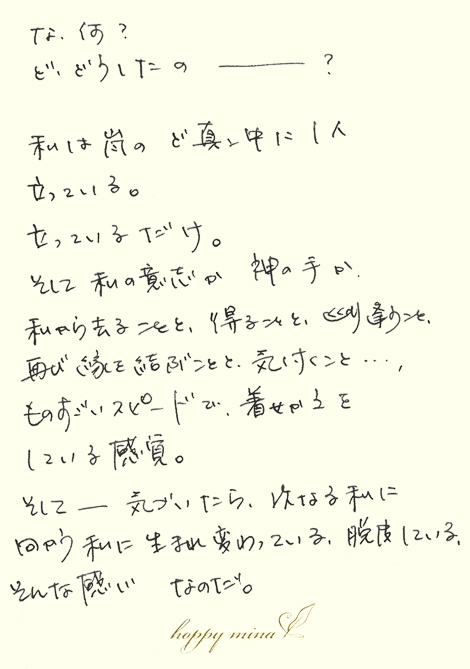 な、何？
ど、どうしたの ――― ？
私は嵐の ど真ン中に1人
立っている。
立っているだけ。
そして 私の意志か 神の手か、
私から去ることと、得ること、巡り逢うこと、
再び縁を結ぶことと、気付くこと…，
ものすごいスピードで、着せかえを
している感覚。
そして ― 気づいたら、次なる私に
向かう 私に 生まれ変わっている、脱皮している、
そんな感じ なのだ。
happy mina